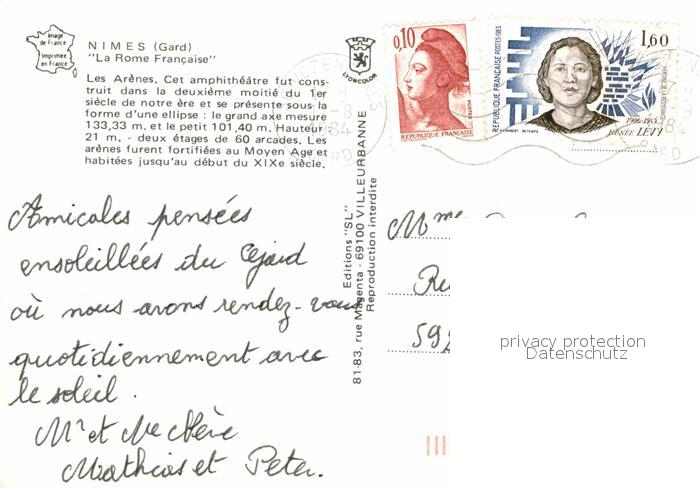 Image
de France
Imprimée
en France
NIMES (Gard)
"La Rome Française"
Les Arènes. Cet amphithéâtre fut cons-
truit dans la deuxième moitié du 1er
siècle de notre ère et se présente sous la
forme d'une ellipse : le grand axe mesure
133,33 m. et le petit 101,40 m. Hauteur :
21 m. - deux étages de 60 arcades. Les
arènes furent fortifiées au Moyen Age et
habitées jusqu'au début du XIXe siècle.
LYONCOLOR
0,10
POSTES
REPUBLIQUE FRANÇAISE
REPUBLIQUE FRANÇAISE POSTES 1983
1,60
RENÉE LEVY
84
Amicales pensées
ensoleillées du Gard
où nous avons rendez-vous
quotidiennement avec
le soleil.
Mr et Me
Mathias et Peter.
Editions "SL"
81-83, rue Magenta - 69100 VILLEURBANNE
Reproduction interdite
Mme
59
privacy protection
Datenschutz